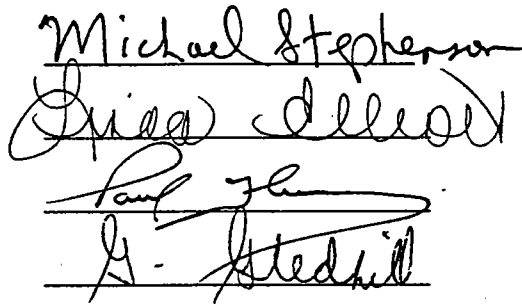 Michael Stephenson
Erica Elliott
Paul
G. Stedhill